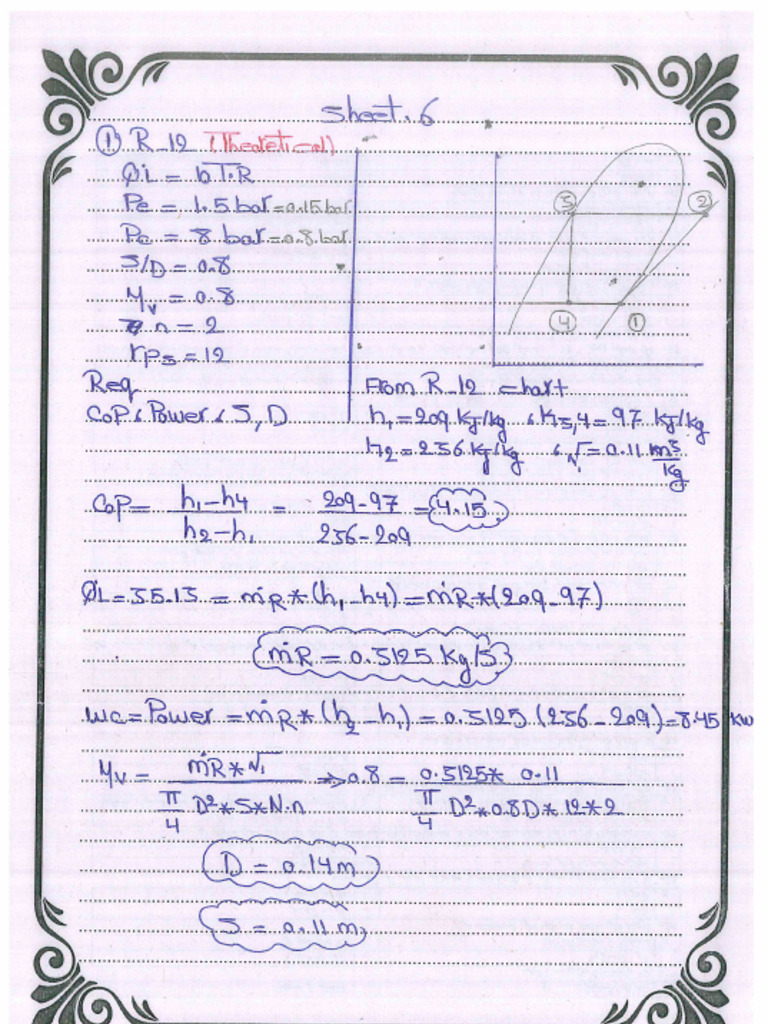 Sheet. 6
① R_12 (Theoretical)
QL = 10 T.R
Pe = 1.5 bar = 0.15 bar
Pc = 8 bar = 0.8 bar
S/D = 0.8
ηv = 0.8
n = 2
rps = 12
③ ②
④ ①
Req
CoP, Power, S, D
From R_12 chart
h1 = 209 Kj/kg , h3,4 = 97 Kj/kg
h2 = 236 Kj/kg , v1 = 0.11 m3/kg
CoP = (h1-h4)/(h2-h1) = (209-97)/(236-209) = 4.15
QL = 35.13 = ṁR * (h1-h4) = ṁR * (209-97)
ṁR = 0.3125 Kg/S
wc = Power = ṁR * (h2-h1) = 0.3125 (236-209) = 8.45 KW
ηv = (ṁR * v1)/(π/4 D² * S * N.n) → 0.8 = (0.3125 * 0.11)/(π/4 D² * 0.8D * 12 * 2)
D = 0.14 m
S = 0.11 m